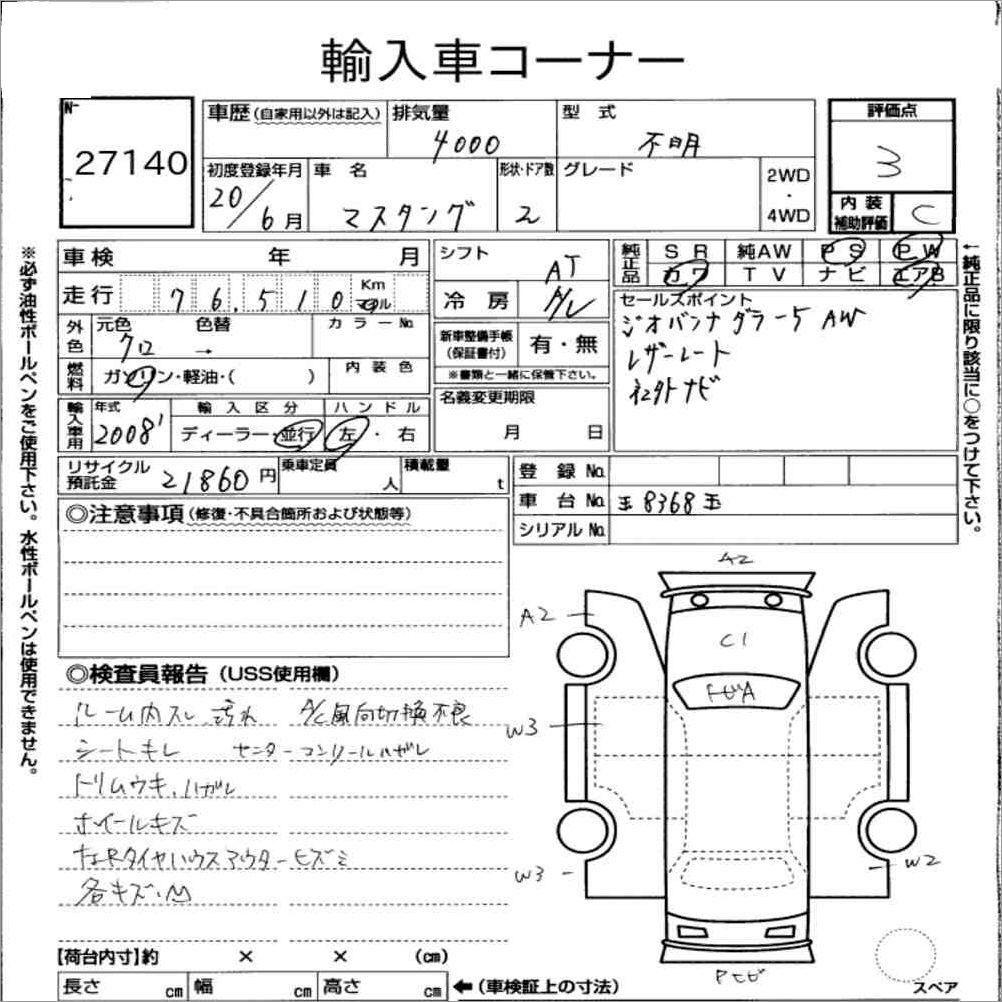 輸入車コーナー
No 27140
車歴(自家用以外は記入) 排気量 4000 型式 不明 評価点 3
初度登録年月 20/6月 車名 マスタング 形状・ドア数 2 グレード 2WD・4WD
内装補助評価 C
車検 年 月
走行 76,510 Km マイル
シフト AT
冷房 A/C
純正品 SR 純AW PS PW
カワ TV ナビ エアB
セールスポイント
ジオバンナダラー5 AW
レザーシート
社外ナビ
外色 元色 クロ 色替 → カラーNo.
燃料 ガソリン・軽油・( ) 内装色
新車整備手帳(保証書付) 有・無
※書類と一緒に保管下さい。
輸入車用 年式 2008' 輸入区分 ディーラー・並行 ハンドル 左・右
名義変更期限 月 日
リサイクル預託金 21860円 乗車定員 人 積載量 t
登録No.
車台No. 8368
シリアルNo.
◎注意事項(修復・不具合箇所および状態等)
◎検査員報告(USS使用欄)
ルーム内スレ 汚れ A/C風向切換不良
シートキレ センターコンソールハガレ
トリムウキ、ハガレ
ホイールキズ
右Rタイヤハウスアウターヒズミ
各キズ・凹
A2
A2
C1
トビA
W3
W3
W2
Pセビ
スペア
【荷台内寸】約 × × (cm)
長さ cm 幅 cm 高さ cm ←(車検証上の寸法)
※必ず油性ボールペンをご使用下さい。水性ボールペンは使用できません。
←純正品に限り該当に○をつけて下さい。